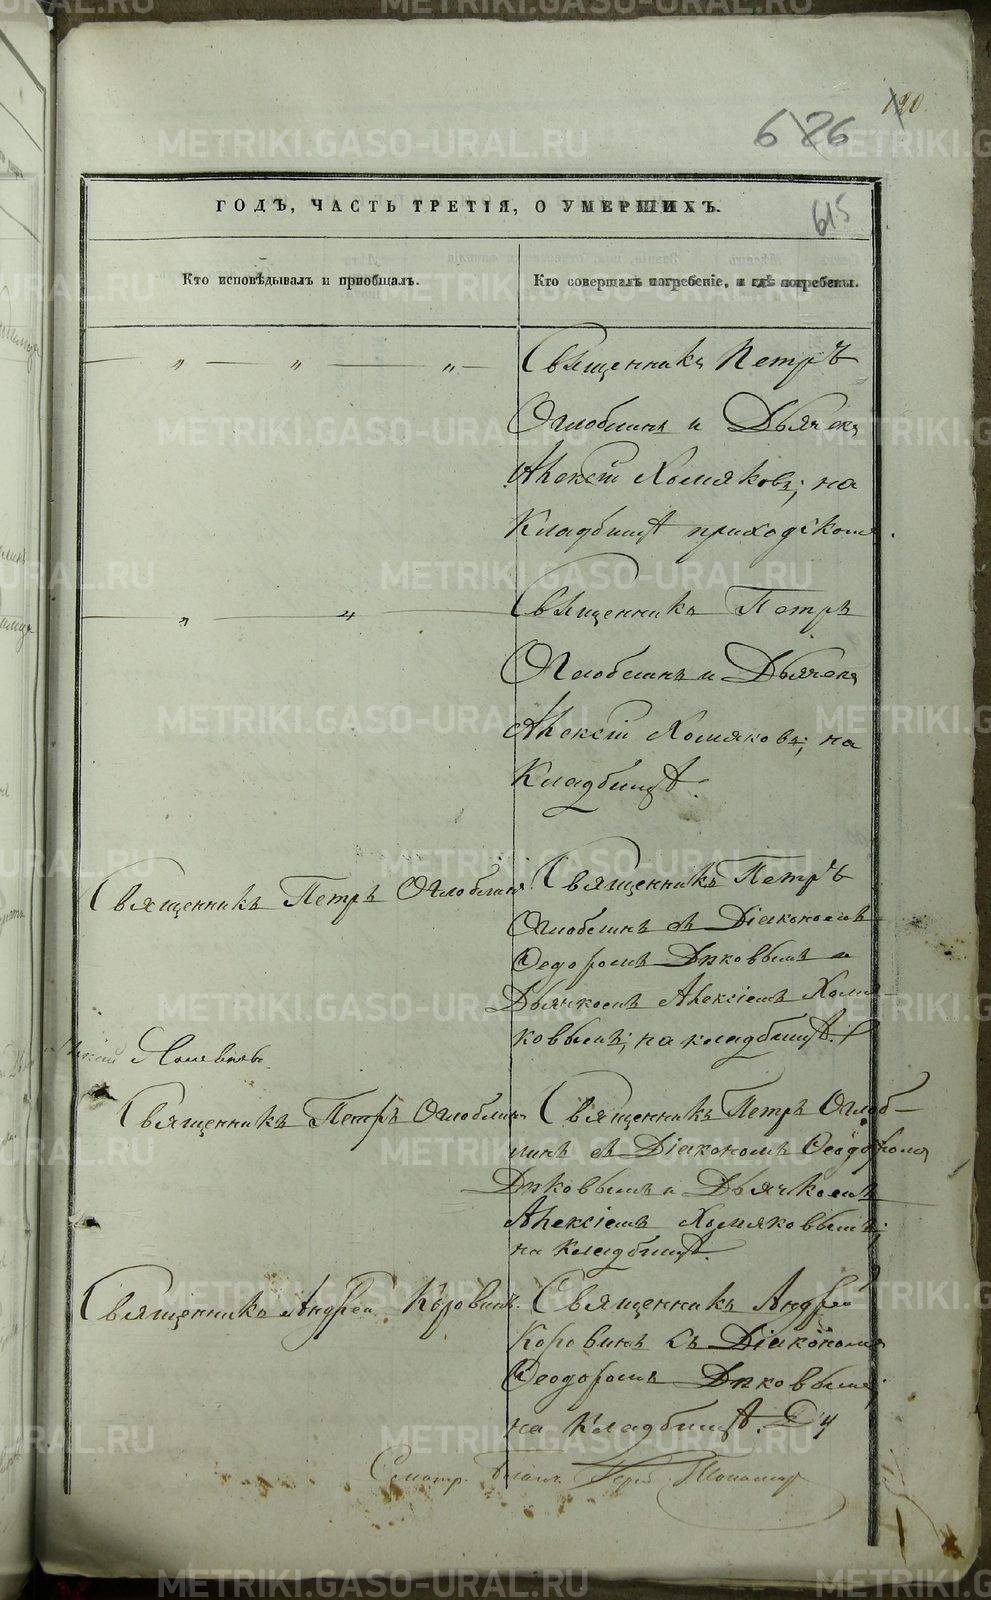 120.
626
615
ГОДЪ, ЧАСТЬ ТРЕТІЯ, О УМЕРШИХЪ.
Кто исповѣдывалъ и пріобщалъ.
Кто совершалъ погребеніе, и гдѣ погребены.
Священникъ Петръ
Оглоблинъ и Дьячекъ
Алексѣй Хомяковъ; на
Кладбищѣ приходскомъ.
Священникъ Петръ
Оглоблинъ и Дьячекъ
Алексѣй Хомяковъ; на
Кладбищѣ.
Священникъ Петръ Оглоблинъ
Священникъ Петръ
Оглоблинъ съ Діакономъ
Ѳеодоромъ Дыковымъ и
Дьячкомъ Алексіемъ Хомя-
ковымъ; на кладбищѣ.
Священникъ Петръ Оглоблинъ
Священникъ Петръ Оглоб-
линъ съ Діакономъ Ѳеодоромъ
Дыковымъ и Дьячкомъ
Алексіемъ Хомяковымъ;
на Кладбищѣ.
Священникъ Андрей Коровинъ.
Священникъ Андрей
Коровинъ съ Діакономъ
Ѳеодоромъ Дыковымъ;
на Кладбищѣ.
METRIKI.GASO-URAL.RU